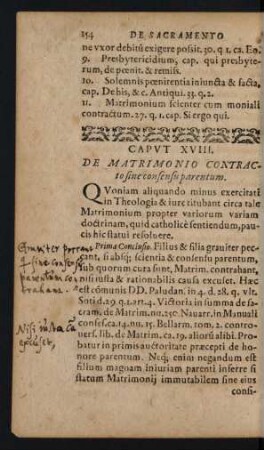 154 DE SACRAMENTO
ne vxor debitū exigere possit. 30. q 1. ca. Eo.
9. Presbytericidium, cap. qui presbyte-
rum, de pœnit. & remiss.
10. Solemnis pœnitentia iniuncta & facta,
cap. De his, & c. Antiqui. 33. q. 2.
11. Matrimonium scienter cum moniali
contractum. 27. q. 1. cap. Si ergo qui.
CAPVT XVIII.
DE MATRIMONIO CONTRAC-
to sine consensu parentum.
QVoniam aliquando minus exercitati
in Theologia & iure titubant circa tale
Matrimonium propter variorum variam
doctrinam, quid catholicè sentiendum, pau-
cis hic statui resoluere.
Prima Conclusio. Filius & filia grauiter pec-
cant, si absq; scientia & consensu parentum,
sub quorum cura sunt, Matrim. contrahant,
nisi iusta & rationabilis causa excuset. Hæc
est cōmunis DD. Paludan. in 4. d. 28. q. vlt.
Soto d. 29 q. 1. art. 4. Victoria in summa de sa-
cram. de Matrim. nu. 250. Nauarr. in Manuali
confes. ca. 14. nu. 15. Bellarm. tom. 2. contro-
uers. lib. de Matrim. ca. 19. alios ʠ alibi. Pro-
batur in primis auctoritate præcepti de ho-
nore parentum. Neq; enim negandum est
filium magnam iniuriam parenti inferre si
statum Matrimonij immutabilem sine eius
consi-
Grauiter peccant
sine consensu
parentum con-
trahant.
Nisi iusta cā
excuset.